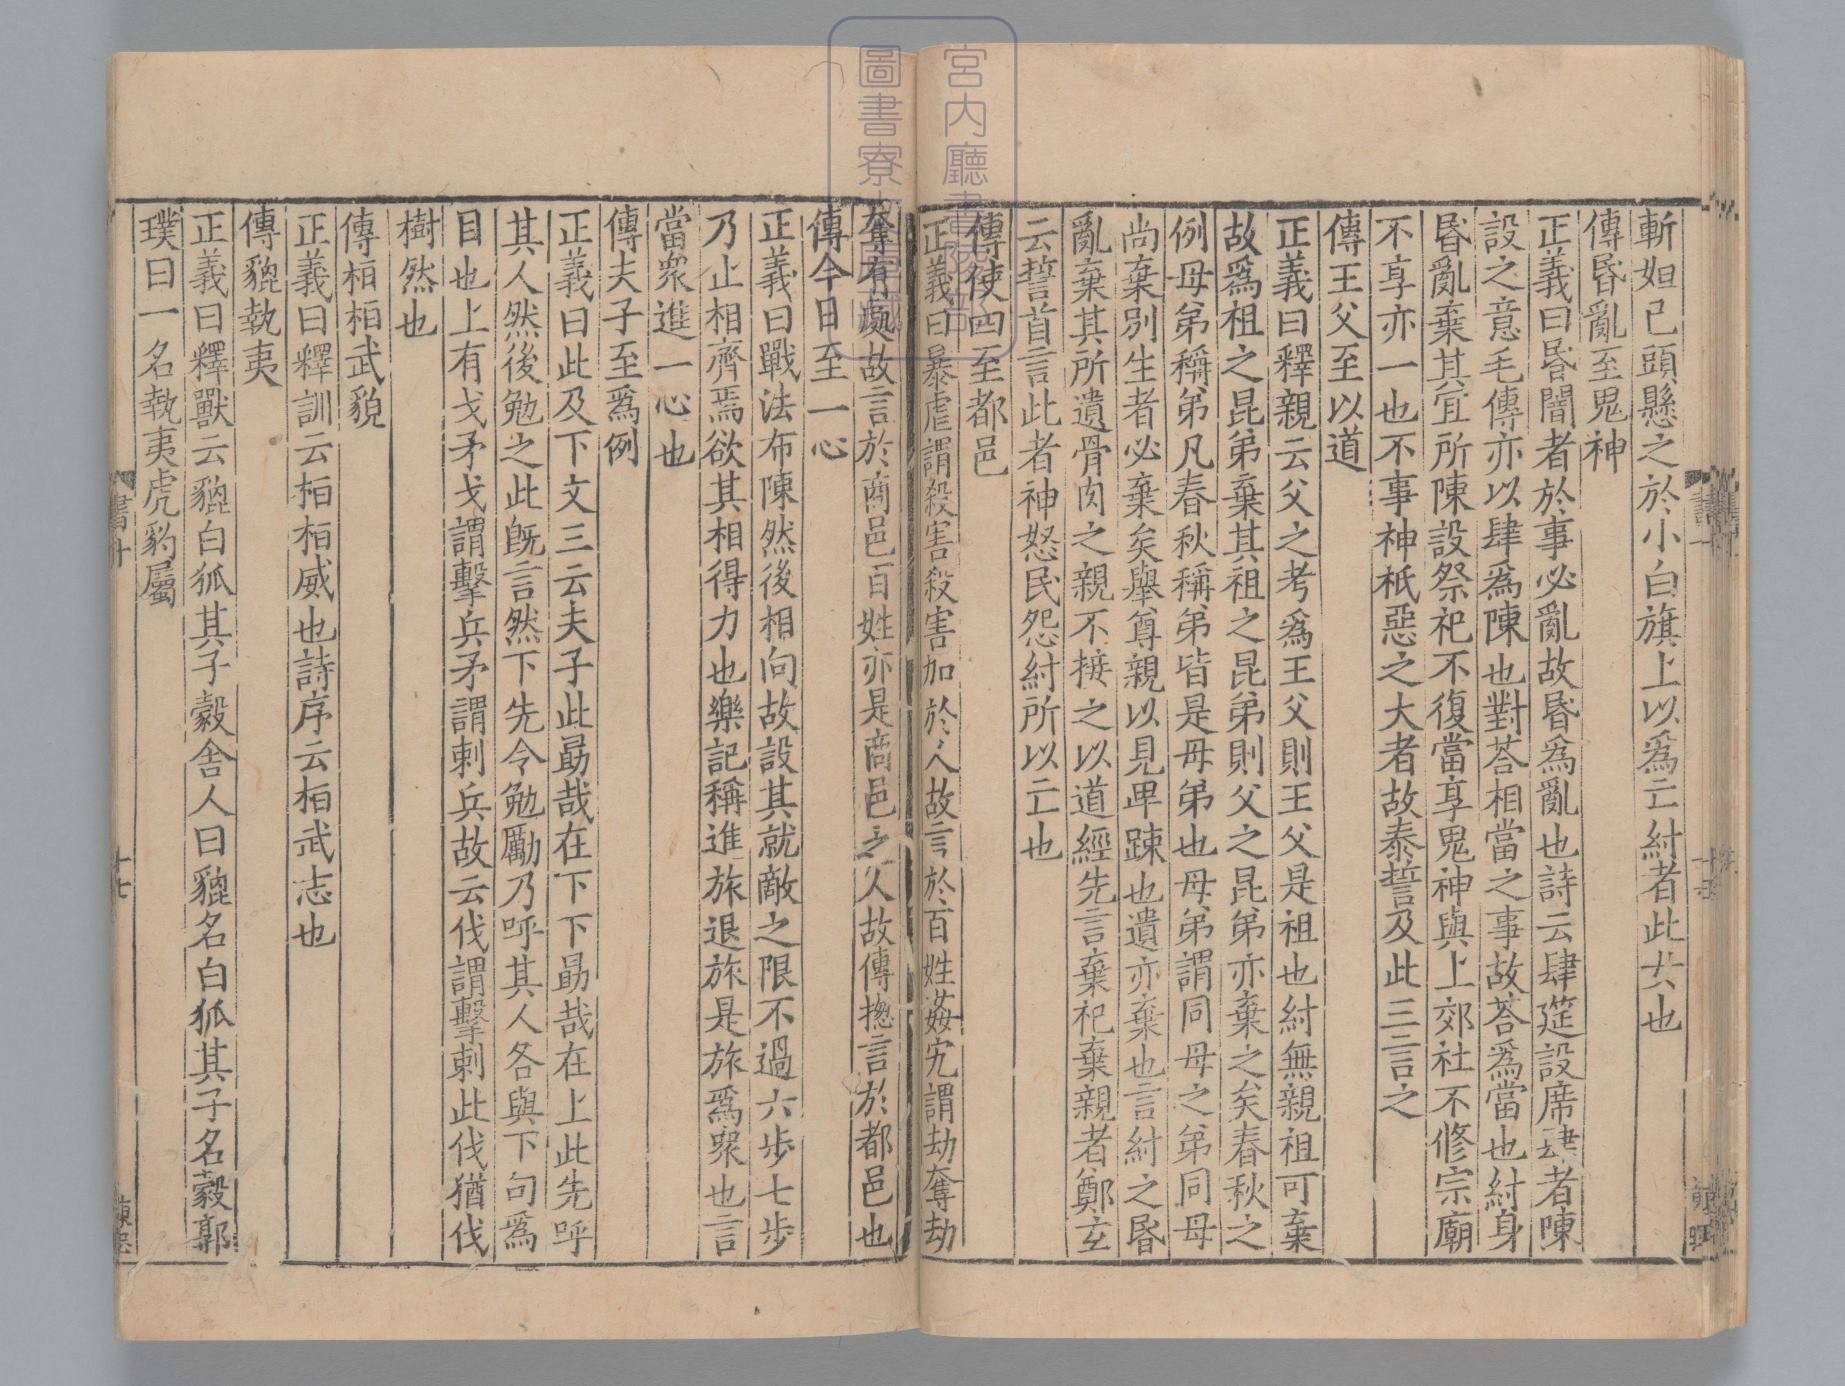 斬妲己頭懸之於小白旗上以爲亡紂者此女也
傳昏亂至鬼神
正義曰昏闇者於事必亂故昏爲亂也詩云肆筵設席肆者陳
設之意毛傳亦以肆爲陳也對荅相當之事故荅爲當也紂身
昏亂棄其宜所陳設祭祀不復當享鬼神與上郊社不修宗廟
不享亦一也不事神祇惡之大者故泰誓及此三言之
傳王父至以道
正義曰釋親云父之考爲王父則王父是祖也紂無親祖可棄
故爲祖之昆弟棄其祖之昆弟則父之昆弟亦棄之矣春秋之
例母弟稱弟凡春秋稱弟皆是母弟也母弟謂同母之弟同母
尚棄別生者必棄矣舉尊親以見卑踈也遺亦棄也言紂之昏
亂棄其所遺骨肉之親不接之以道經先言棄祀棄親者鄭玄
云誓首言此者神怒民怨紂所以亡也
傳使四至都邑
正義曰暴虐謂殺害殺害加於人故言於百姓姦宄謂劫奪劫
奪有處故言於商邑百姓亦是商邑之人故傳揔言於都邑也
傳今日至一心
正義曰戰法布陳然後相向故設其就敵之限不過六步七步
乃止相齊焉欲其相得力也樂記稱進旅退旅是旅爲衆也言
當衆進一心也
傳夫子至爲例
正義曰此及下文三云夫子此勗哉在下下勗哉在上此先呼
其人然後勉之此旣言然下先令勉勵乃呼其人各與下句爲
目也上有戈矛戈謂擊兵矛謂刺兵故云伐謂擊刺此伐猶伐
樹然也
傳桓桓武貌
正義曰釋訓云桓桓威也詩序云桓武志也
傳貔執夷
正義曰釋獸云貔白狐其子豰舍人曰貔名白狐其子名豰郭
璞曰一名執夷虎豹屬
書十
十七
宮內廳書陵部
圖書寮